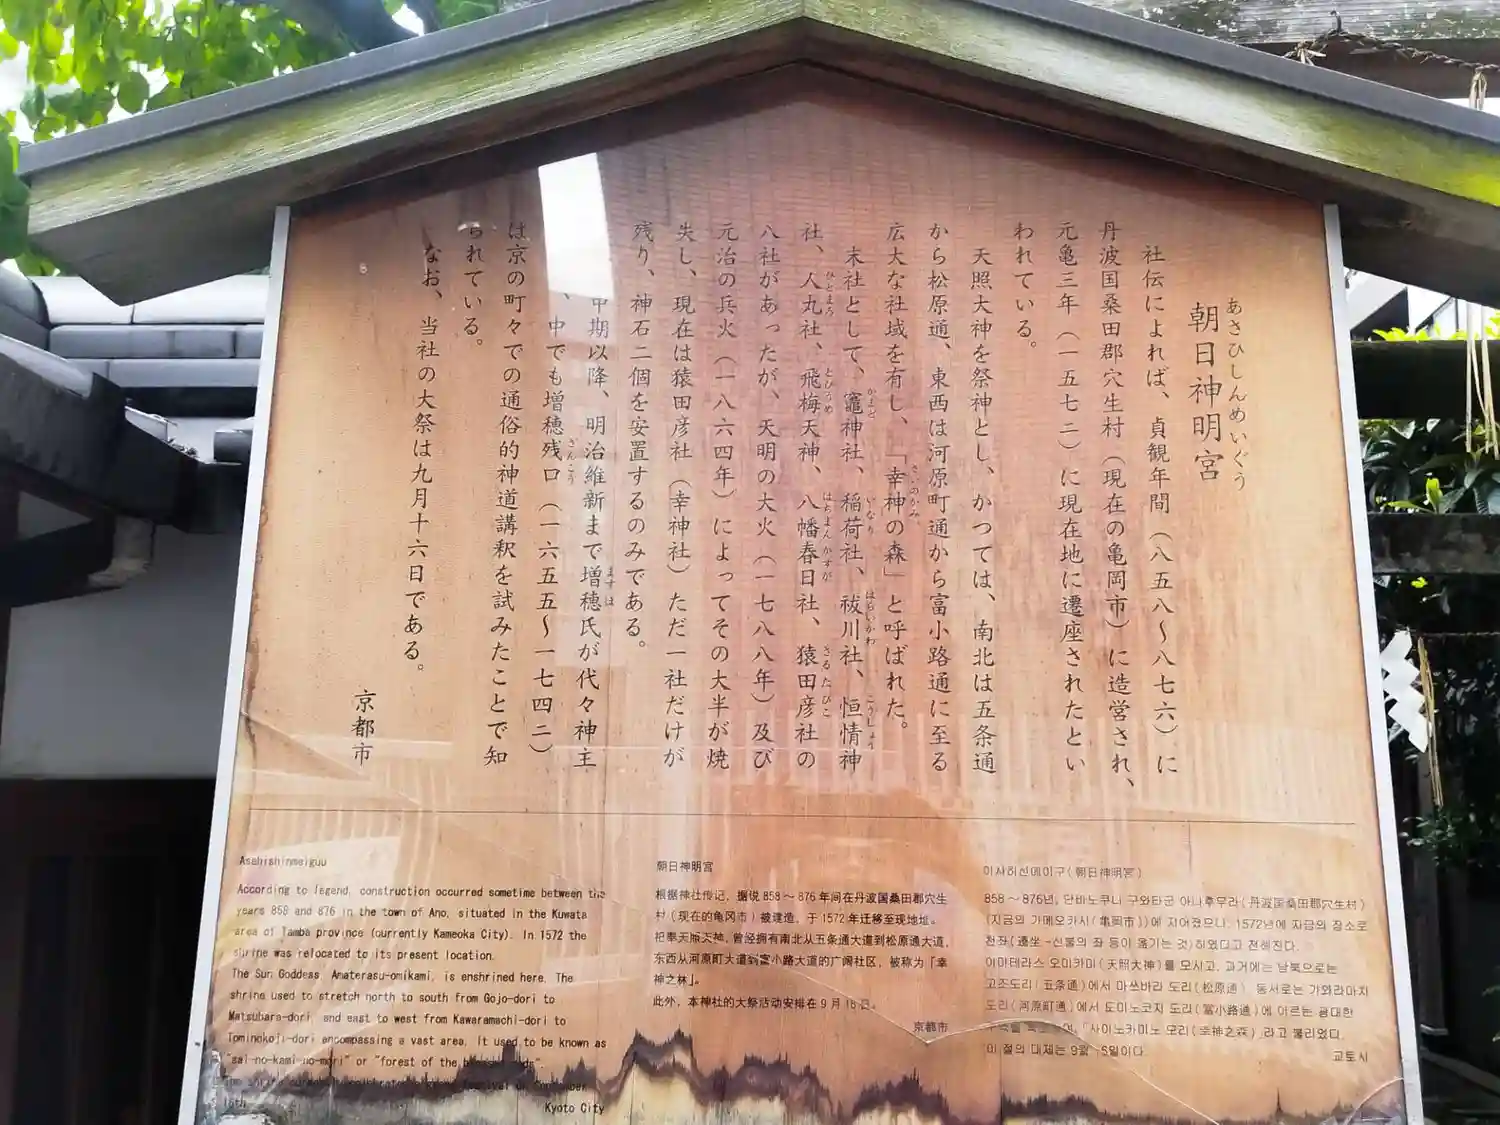 あさひしんめいぐう
朝日神明宮
社伝によれば、貞観年間（八五八〜八七六）に
丹波国桑田郡穴生村（現在の亀岡市）に造営され、
元亀三年（一五七二）に現在地に遷座されたとい
われている。
天照大神を祭神とし、かつては、南北は五条通
から松原通、東西は河原町通から富小路通に至る
広大な社域を有し、「幸神の森」と呼ばれた。
さいのかみ
末社として、竈神社、稲荷社、祓川社、恒情神
かまど いなり はらいかわ こうしょう
社、人丸社、飛梅天神、八幡春日社、猿田彦社の
ひとまろ とびうめ はちまんかすが さるたびこ
八社があったが、天明の大火（一七八八年）及び
元治の兵火（一八六四年）によってその大半が焼
失し、現在は猿田彦社（幸神社）ただ一社だけが
残り、神石二個を安置するのみである。
中期以降、明治維新まで増穂氏が代々神主
ますほ
、中でも増穂残口（一六五五〜一七四二）
ざんこう
は京の町々での通俗的神道講釈を試みたことで知
られている。
なお、当社の大祭は九月十六日である。
京都市
Asahishinmeiguu
According to legend, construction occurred sometime between the
years 858 and 876 in the town of Ano, situated in the Kuwata
area of Tamba province (currently Kameoka City). In 1572 the
shrine was relocated to its present location.
The Sun Goddess, Amaterasu-omikami, is enshrined here. The
shrine used to stretch north to south from Gojo-dori to
Matsubara-dori, and east to west from Kawaramachi-dori to
Tominokoji-dori encompassing a vast area. It used to be known as
"sai-no-kami-no-mori" or "forest of the
16th.
Kyoto City
朝日神明宮
根据神社传记，据说858～876年间在丹波国桑田郡穴生
村（现在的亀冈市）被建造，于1572年迁移至现地址。
祀奉天照大神，曾经拥有南北从五条通大道到松原通大道，
东西从河原町大道到富小路大道的广阔社区，被称为「幸
神之林」。
此外，本神社的大祭活动安排在9月16日。
京都市
아사히신메이구(朝日神明宮)
858～876년, 단바노쿠니 구와타군 아나후무라(丹波国桑田郡穴生村)
(지금의 가메오카시(亀岡市))에 지어졌으나, 1572년에 지금의 장소로
천좌(遷坐-신불의 좌 등이 옮기는 것)하였다고 전해진다.
아마테라스 오미카미(天照大神)를 모시고, 과거에는 남북으로는
고조도리(五条通)에서 마쓰바라 도리(松原通) 동서로는 가와라마치
도리(河原町通)에서 토미노코지 도리(富小路通)에 이르는 광대한
「사이노카미노 모리(幸神之森)」라고 불리었다.
이 절의 대제는 9월 16일이다.
교토시